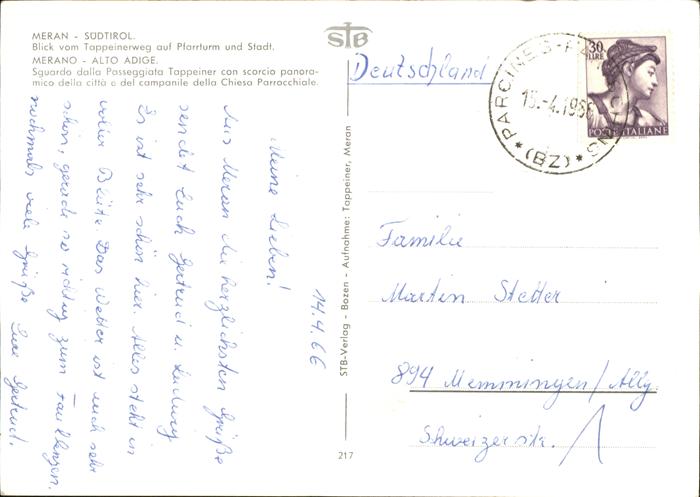 MERAN - SÜDTIROL.
Blick vom Tappeinerweg auf Pfarrturm und Stadt.
MERANO - ALTO ADIGE.
Sguardo dalla Passeggiata Tappeiner con scorcio panora-
mico della città e del campanile della Chiesa Parrocchiale.
14.4.66
Meine Lieben!
Aus Meran die herzlichsten Grüße
sendet Euch Gertrud u. Ludwig
Es ist sehr schön hier. Alles steht in
voller Blüte Das Wetter ist auch sehr
schön, gerade so richtig zum Faullenzen.
nochmals viele Grüße Eure Gertrud.
STB-Verlag - Bozen - Aufnahme: Tappeiner, Meran
217
STB
Deutschland
30
LIRE
POSTE ITALIANE
PARCINES-
15.-4.1966
*(BZ)*
Familie
Martin Stetter
894 Memmingen/Allg.
Schweizerstr. 1